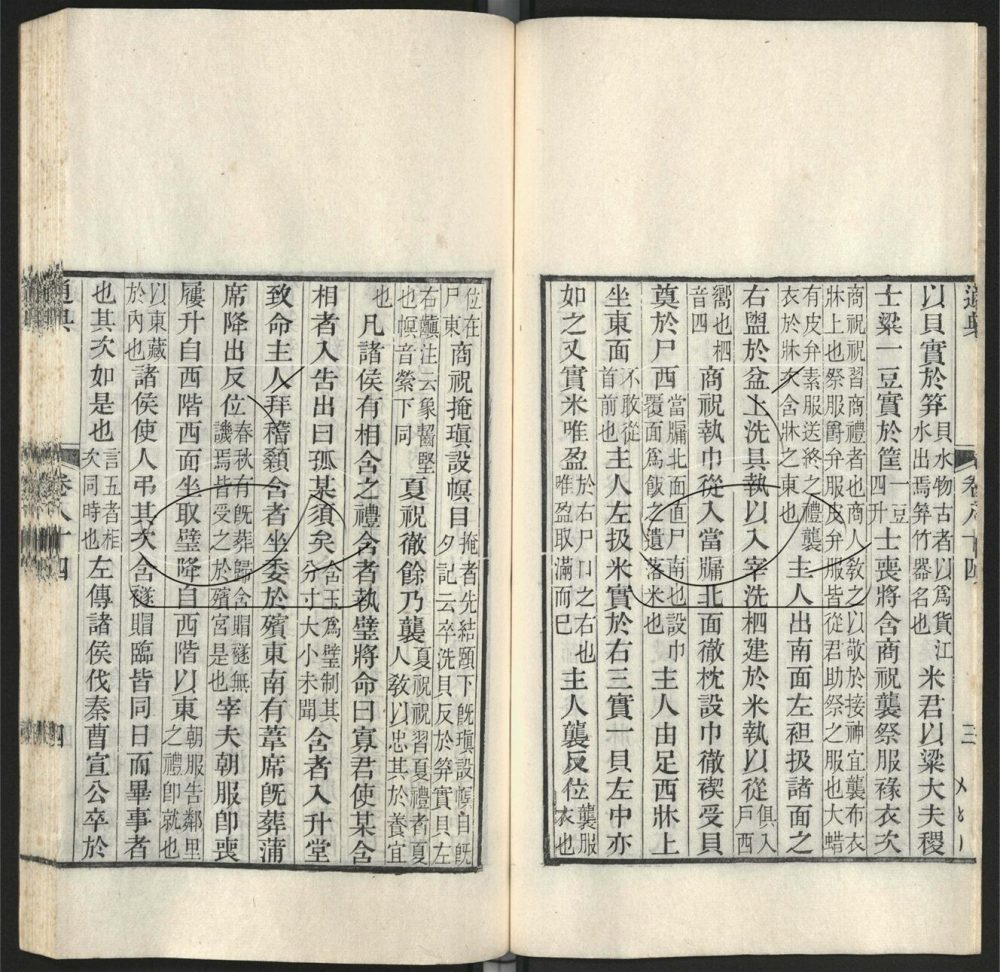 通典 卷八十四 三
以貝實於笲貝水物古者以爲貨江水出焉笲竹器名也米君以粱大夫稷
士粱一豆實於筐一豆四升士喪將含商祝襲祭服褖衣次
商祝祝習商禮者也商人敎之以敬於接神宜襲布衣牀上也祭服爵弁服皮弁服皆從君助祭之服也大蜡
有皮弁素服送終之禮襲衣於牀次含牀之東也主人出南面左袒扱諸面之
右盥於盆上洗貝執以入宰洗柶建於米執以從俱入戶西
嚮也柶音四商祝執巾從入當牖北面徹枕設巾徹楔受貝
奠於尸西當牖北面直尸南也設巾覆面爲飯之遺落米也主人由足西牀上
坐東面不敢從首前也主人左扱米實於右三實一貝左中亦
如之又實米唯盈於右尸口之右也唯盈取滿而已主人襲反位襲服衣也
位在尸東商祝掩瑱設幎目掩者先結頤下旣瑱設幎目旣夕記云卒洗貝反於笲實貝左
右䪴注云象齒堅也幎音縈下同夏祝徹餘乃襲夏祝習夏禮者夏人敎以忠其於養宜
也凡諸侯有相含之禮含者執璧將命曰寡君使某含
相者入告出曰孤某須矣含玉爲璧制其分寸大小未聞含者入升堂
致命主人拜稽顙含者坐委於殯東南有葦席旣葬蒲
席降出反位春秋有旣葬歸含賵襚無譏焉皆受之於殯宮是也宰夫朝服卽喪
屨升自西階西面坐取璧降自西階以東朝服告鄰里之禮卽就也
以東藏於內也諸侯使人弔其次含襚賵臨皆同日而畢事者
也其次如是也言五者相次同時也左傳諸侯伐秦曹宣公卒於
通典 卷八十四 四